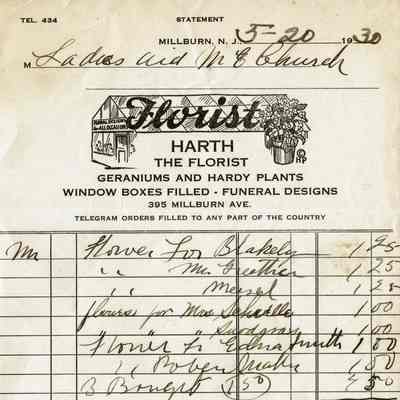 TEL. 434
STATEMENT
MILLBURN, N. J. 5-20 1930
M Ladies aid M E Church
FUNERAL DESIGNS
for ALL OCCASIONS
Florist
HARTH
THE FLORIST
GERANIUMS AND HARDY PLANTS
WINDOW BOXES FILLED - FUNERAL DESIGNS
395 MILLBURN AVE.
TELEGRAM ORDERS FILLED TO ANY PART OF THE COUNTRY
Flower For Blakely 1 25
" Mrs 1 25
" 1 25
flowers for Mrs 1 00
" " " 1 00
Flower Fo Edna Smith 1 00
" 1 50
3 Bouquet 150 50